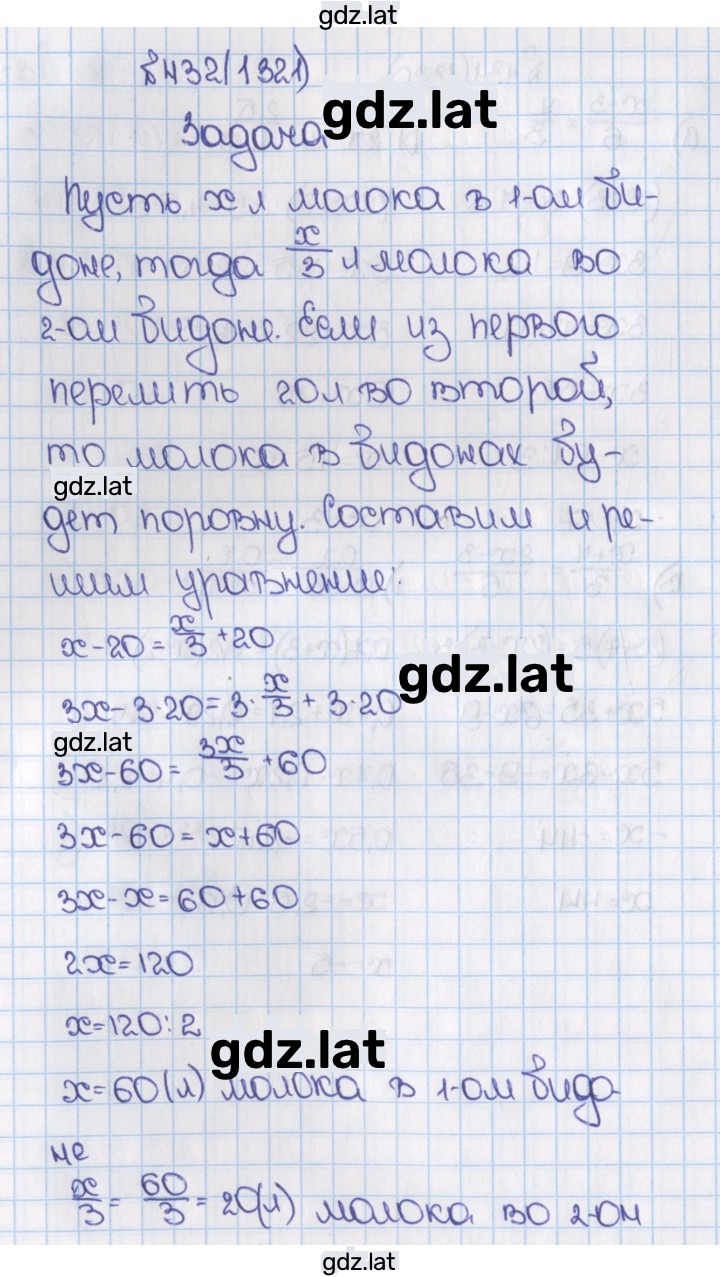 gdz.lat
№432(1321)
gdz.lat
Задача
Пусть x л молока в 1-ом би-
доне, тогда x/3 л молока во
2-ом бидоне. Если из первого
перелить 20л во второй,
то молока в бидонах бу-
gdz.lat
дет поровну. Составим и ре-
шим уравнение:
x-20=x/3+20
gdz.lat
3x-3·20=3·x/3+3·20
gdz.lat
3x-60=3x/3+60
3x-60=x+60
3x-x=60+60
2x=120
x=120:2
gdz.lat
x=60(л) молока в 1-ом бидо
не
x/3=60/3=20(л) молока во 2-ом
gdz.lat